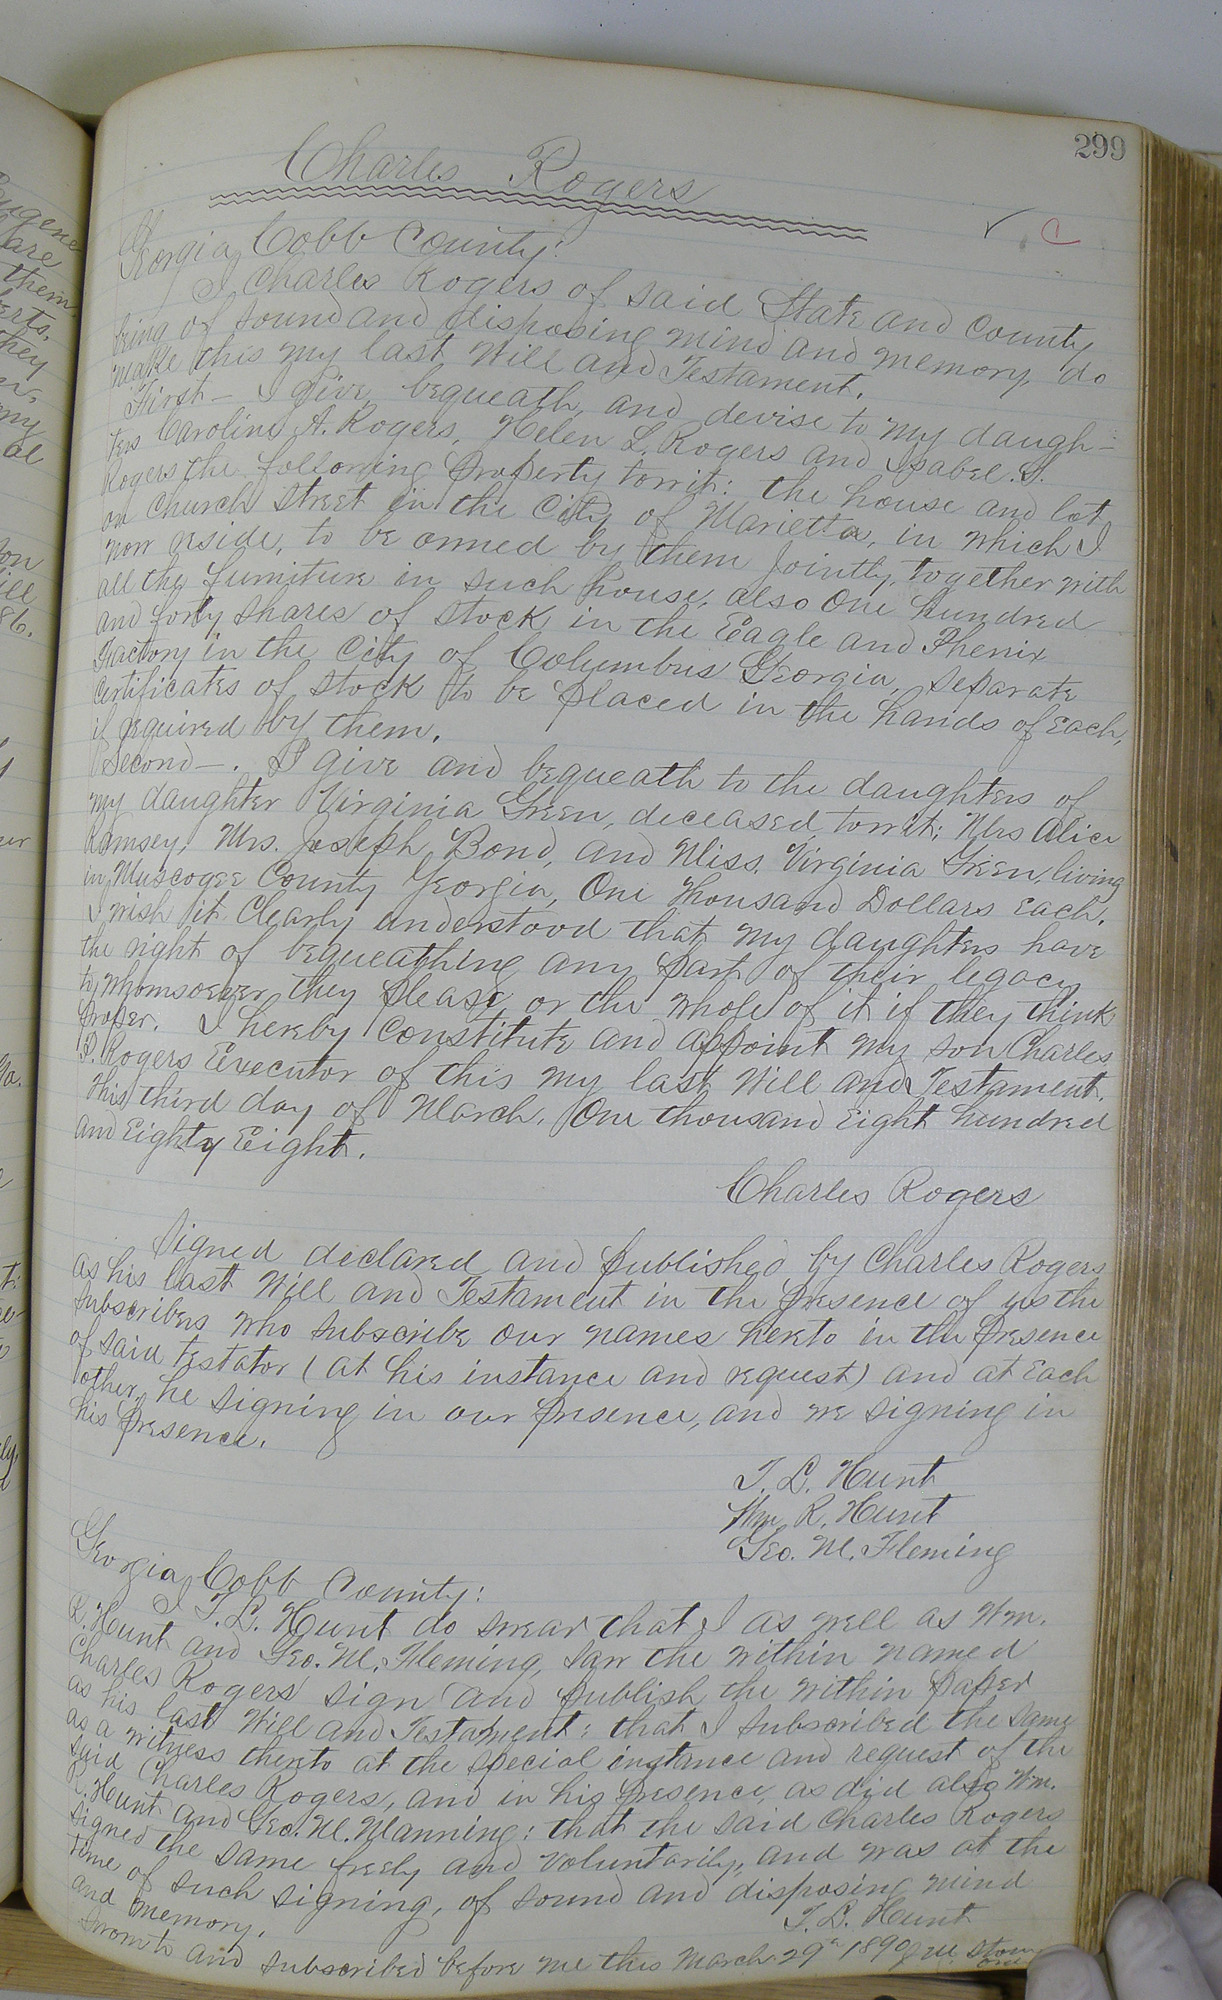 299
Charles Rogers
✓ C
Georgia, Cobb County:
I Charles Rogers of said State and County
being of sound and disposing mind and memory, do
make this my last Will and Testament.
First — I give, bequeath, and devise to my daugh-
ters Caroline A. Rogers, Helen L. Rogers and Isabel. S.
Rogers the following property towit: the house and lot
on Church Street in the City of Marietta, in which I
now reside, to be owned by them jointly, together with
all the furniture in such house, also One hundred
and forty shares of stock in the Eagle and Phenix
Factory in the City of Columbus Georgia, separate
certificates of stock to be placed in the hands of each,
if required by them.
Second —. I give and bequeath to the daughters of
my daughter Virginia Green, deceased, towit; Mrs Alice
Ramsey, Mrs. Joseph Bond, and Miss. Virginia Green, living
in Muscogee County Georgia, One Thousand Dollars each.
I wish it clearly understood that my daughters have
the right of bequeathing any part of their legacy
to whomsoever they please or the whole of it if they think
proper. I hereby constitute and appoint my son Charles
P. Rogers Executor of this my last Will and Testament.
This third day of March. One thousand Eight hundred
and Eighty Eight.
Charles Rogers
Signed declared and published by Charles Rogers
as his last Will and Testament in the presence of us the
subscribers who subscribe our names hereto in the presence
of said testator (at his instance and request) and at each
other, he signing in our presence, and we signing in
his presence.
T. L. Hunt
Wm R. Hunt
Geo. M. Fleming
Georgia, Cobb County:
I T. L. Hunt do swear that I as well as Wm.
R. Hunt and Geo. M. Fleming, saw the within named
Charles Rogers sign and publish the within paper
as his last Will and Testament: that I subscribed the same
as a witness thereto at the special instance and request of the
said Charles Rogers, and in his presence, as did also Wm.
R. Hunt and Geo. M. Manning: that the said Charles Rogers
signed the same freely and voluntarily, and was at the
time of such signing, of sound and disposing mind
and memory.
T. L. Hunt
Sworn to and subscribed before me this March 29th 1890 J. M. Stone